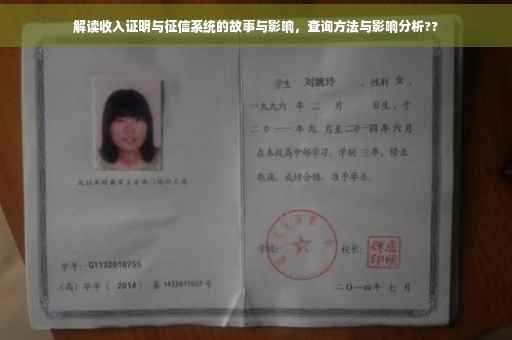 解读收入证明与征信系统的故事与影响，查询方法与影响分析??
学生 刘婉玲 ，性别 女 ，
一九九六 年 二 月 日生，于
二〇一一年 九 月至 二〇一四年 六 月
在本校高中部学习，学制 三年，修业
期满，成绩合格，准予毕业。
学号： G1132010755
(高) 毕字 ( 2014 ) 第 1432011027 号
学校： 校长：
二〇一四年 七 月